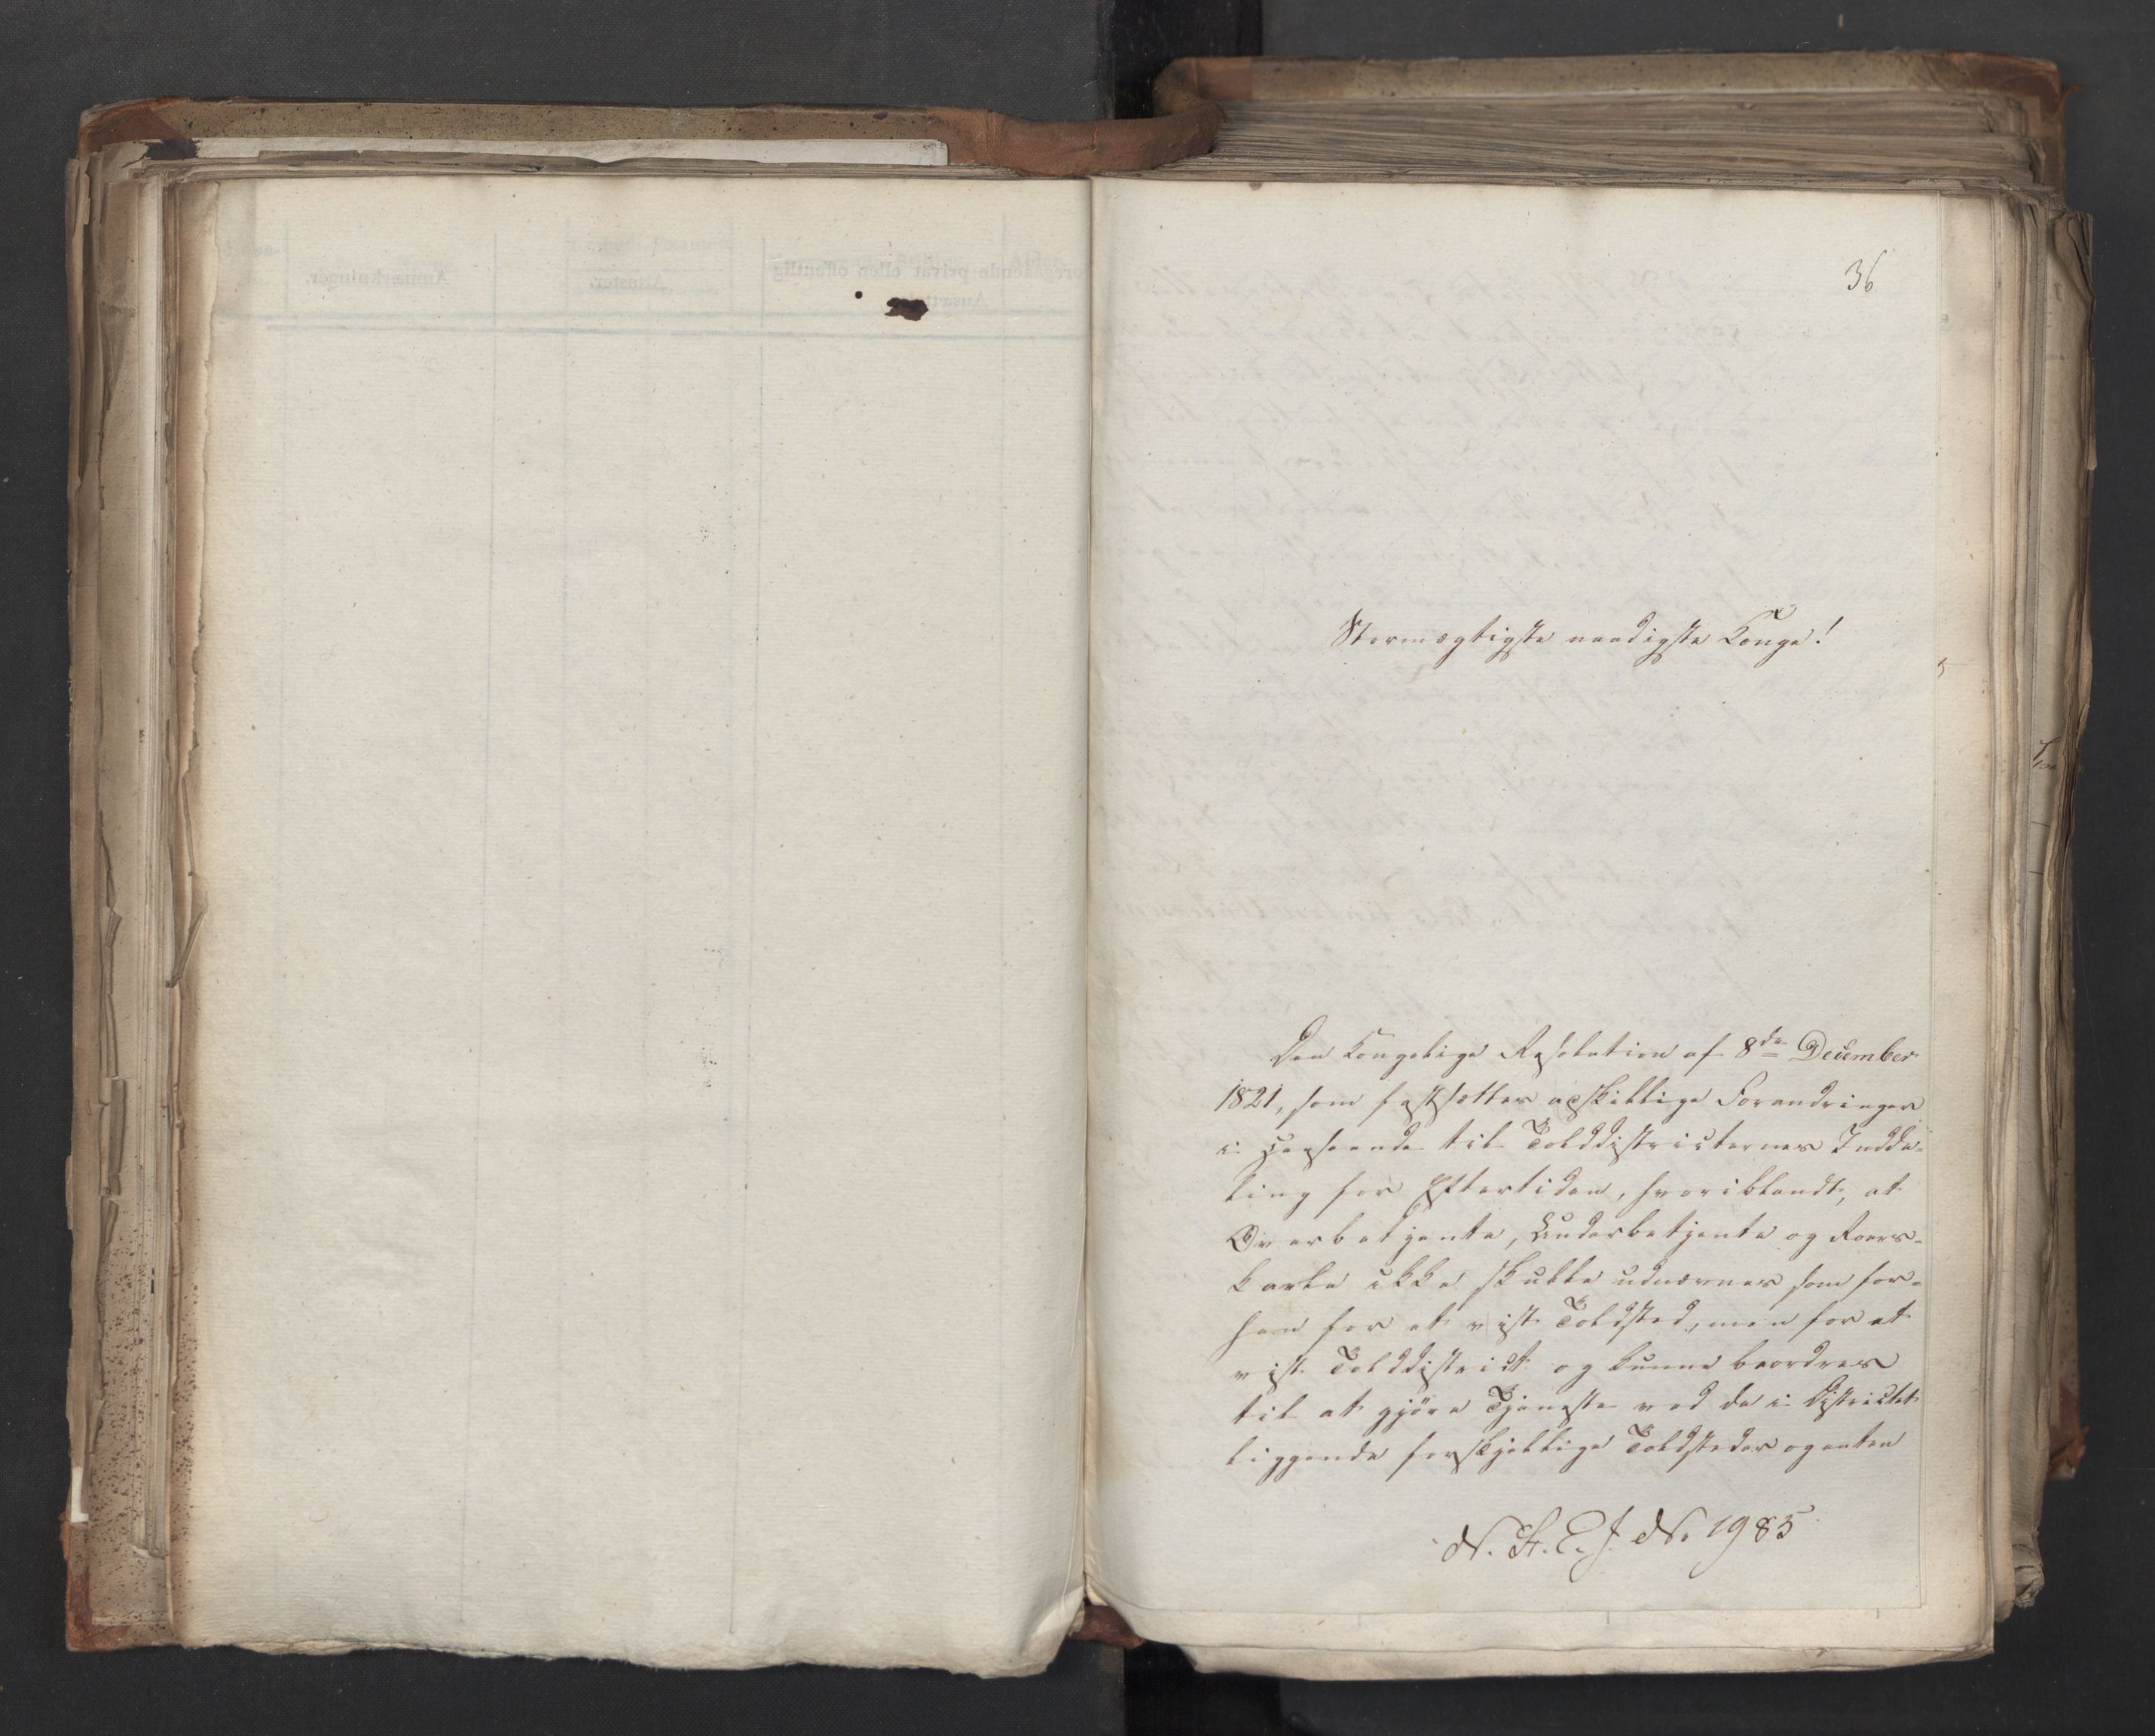 36
Stormægtigste naadigste Konge!
Den kongelige Resolution af 8de December
1821, som fastsætter adskillige Forandringer
i Henseende til Tolddistricternes Indde-
ling for Eftertiden, hvoriblandt, at
Overbetjente, Underbetjente og Roers-
karle ikke skulle udnævnes som for-
hen for et vist Toldsted, men for et
vist Tolddistrict og kunne beordres
til at gjöre Tjeneste ved de i Districtet
liggende forskjellige Toldsteder og enten
N. St. C. J. No 1985